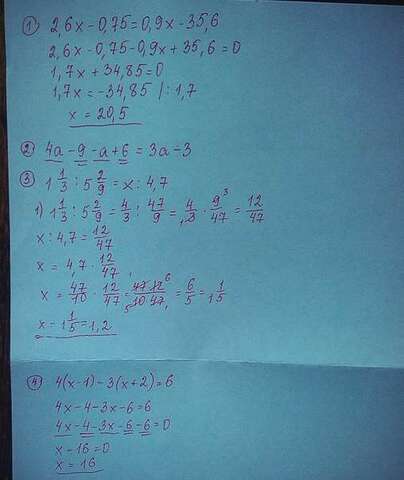 1) 2,6x-0,75=0,9x-35,6
2,6x-0,75-0,9x+35,6=0
1,7x+34,85=0
1,7x=-34,85 |:1,7
x=20,5
2) 4a-9-a+6=3a-3
3) 1 1/3 : 5 2/9 = x : 4,7
1) 1 1/3 : 5 2/9 = 4/3 : 47/9 = 4/3 · 9/47 = 12/47
x : 4,7 = 12/47
x = 4,7 · 12/47
x = 47/10 · 12/47 = 47·12/10·47 = 6/5 = 1 1/5
x = 1 1/5 = 1,2
4) 4(x-1)-3(x+2)=6
4x-4-3x-6=6
4x-4-3x-6-6=0
x-16=0
x=16